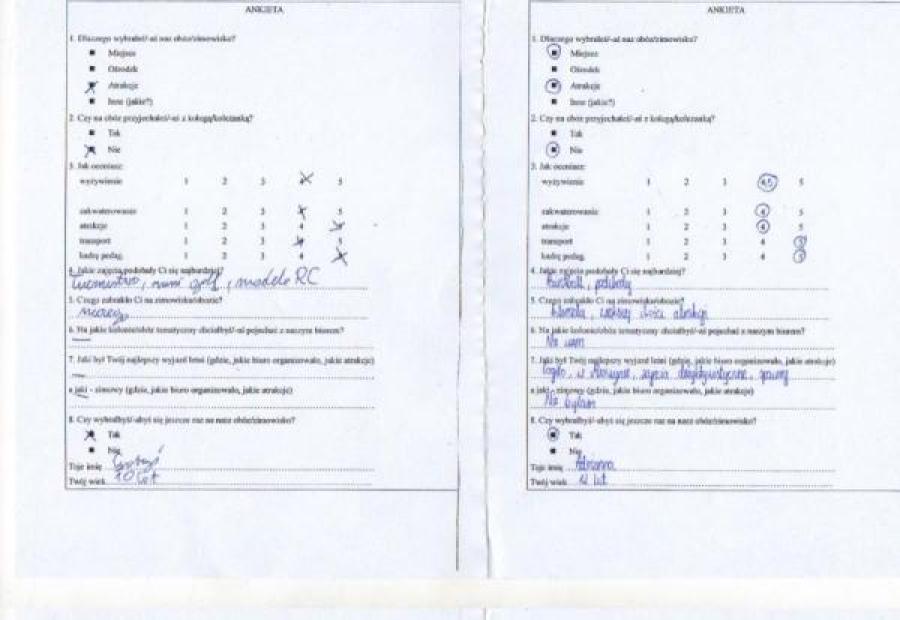 ANKIETA
1. Dlaczego wybrałeś/-aś nasz obóz/zimowisko?
Miejsce
Ośrodek
Atrakcje
Inne (jakie?)
2. Czy na obóz przyjechałeś/-aś z kolegą/koleżanką?
Tak
Nie
3. Jak oceniasz:
wyżywienie 1 2 3 4 5
zakwaterowanie 1 2 3 4 5
atrakcje 1 2 3 4 5
transport 1 2 3 4 5
kadrę pedag. 1 2 3 4 5
4. Jakie zajęcia podobały Ci się najbardziej?
mini golf, modele RC
5. Czego zabrakło Ci na zimowisku/obozie?
6. Na jakie kolonie/obóz tematyczny chciałbyś/-aś pojechać z naszym biurem?
7. Jaki był Twój najlepszy wyjazd letni (gdzie, jakie biuro organizowało, jakie atrakcje)
a jaki - zimowy (gdzie, jakie biuro organizowało, jakie atrakcje)
8. Czy wybrałbyś/-abyś się jeszcze raz na nasz obóz/zimowisko?
Tak
Nie
Toje imię
Twój wiek 10 lat
ANKIETA
1. Dlaczego wybrałeś/-aś nasz obóz/zimowisko?
Miejsce
Ośrodek
Atrakcje
Inne (jakie?)
2. Czy na obóz przyjechałeś/-aś z kolegą/koleżanką?
Tak
Nie
3. Jak oceniasz:
wyżywienie 1 2 3 4,5 5
zakwaterowanie 1 2 3 4 5
atrakcje 1 2 3 4 5
transport 1 2 3 4 5
kadrę pedag. 1 2 3 4 5
4. Jakie zajęcia podobały Ci się najbardziej?
Paintball,
5. Czego zabrakło Ci na zimowisku/obozie?
większej ilości atrakcji
6. Na jakie kolonie/obóz tematyczny chciałbyś/-aś pojechać z naszym biurem?
Nie wiem
7. Jaki był Twój najlepszy wyjazd letni (gdzie, jakie biuro organizowało, jakie atrakcje)
a jaki - zimowy (gdzie, jakie biuro organizowało, jakie atrakcje)
Nie byłam
8. Czy wybrałbyś/-abyś się jeszcze raz na nasz obóz/zimowisko?
Tak
Nie
Toje imię Adrianna
Twój wiek 12 lat